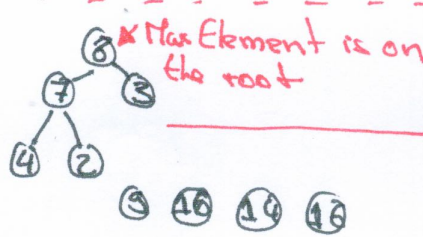 8 Max Element is on
the root
7 3
4 2
9 10 14 16